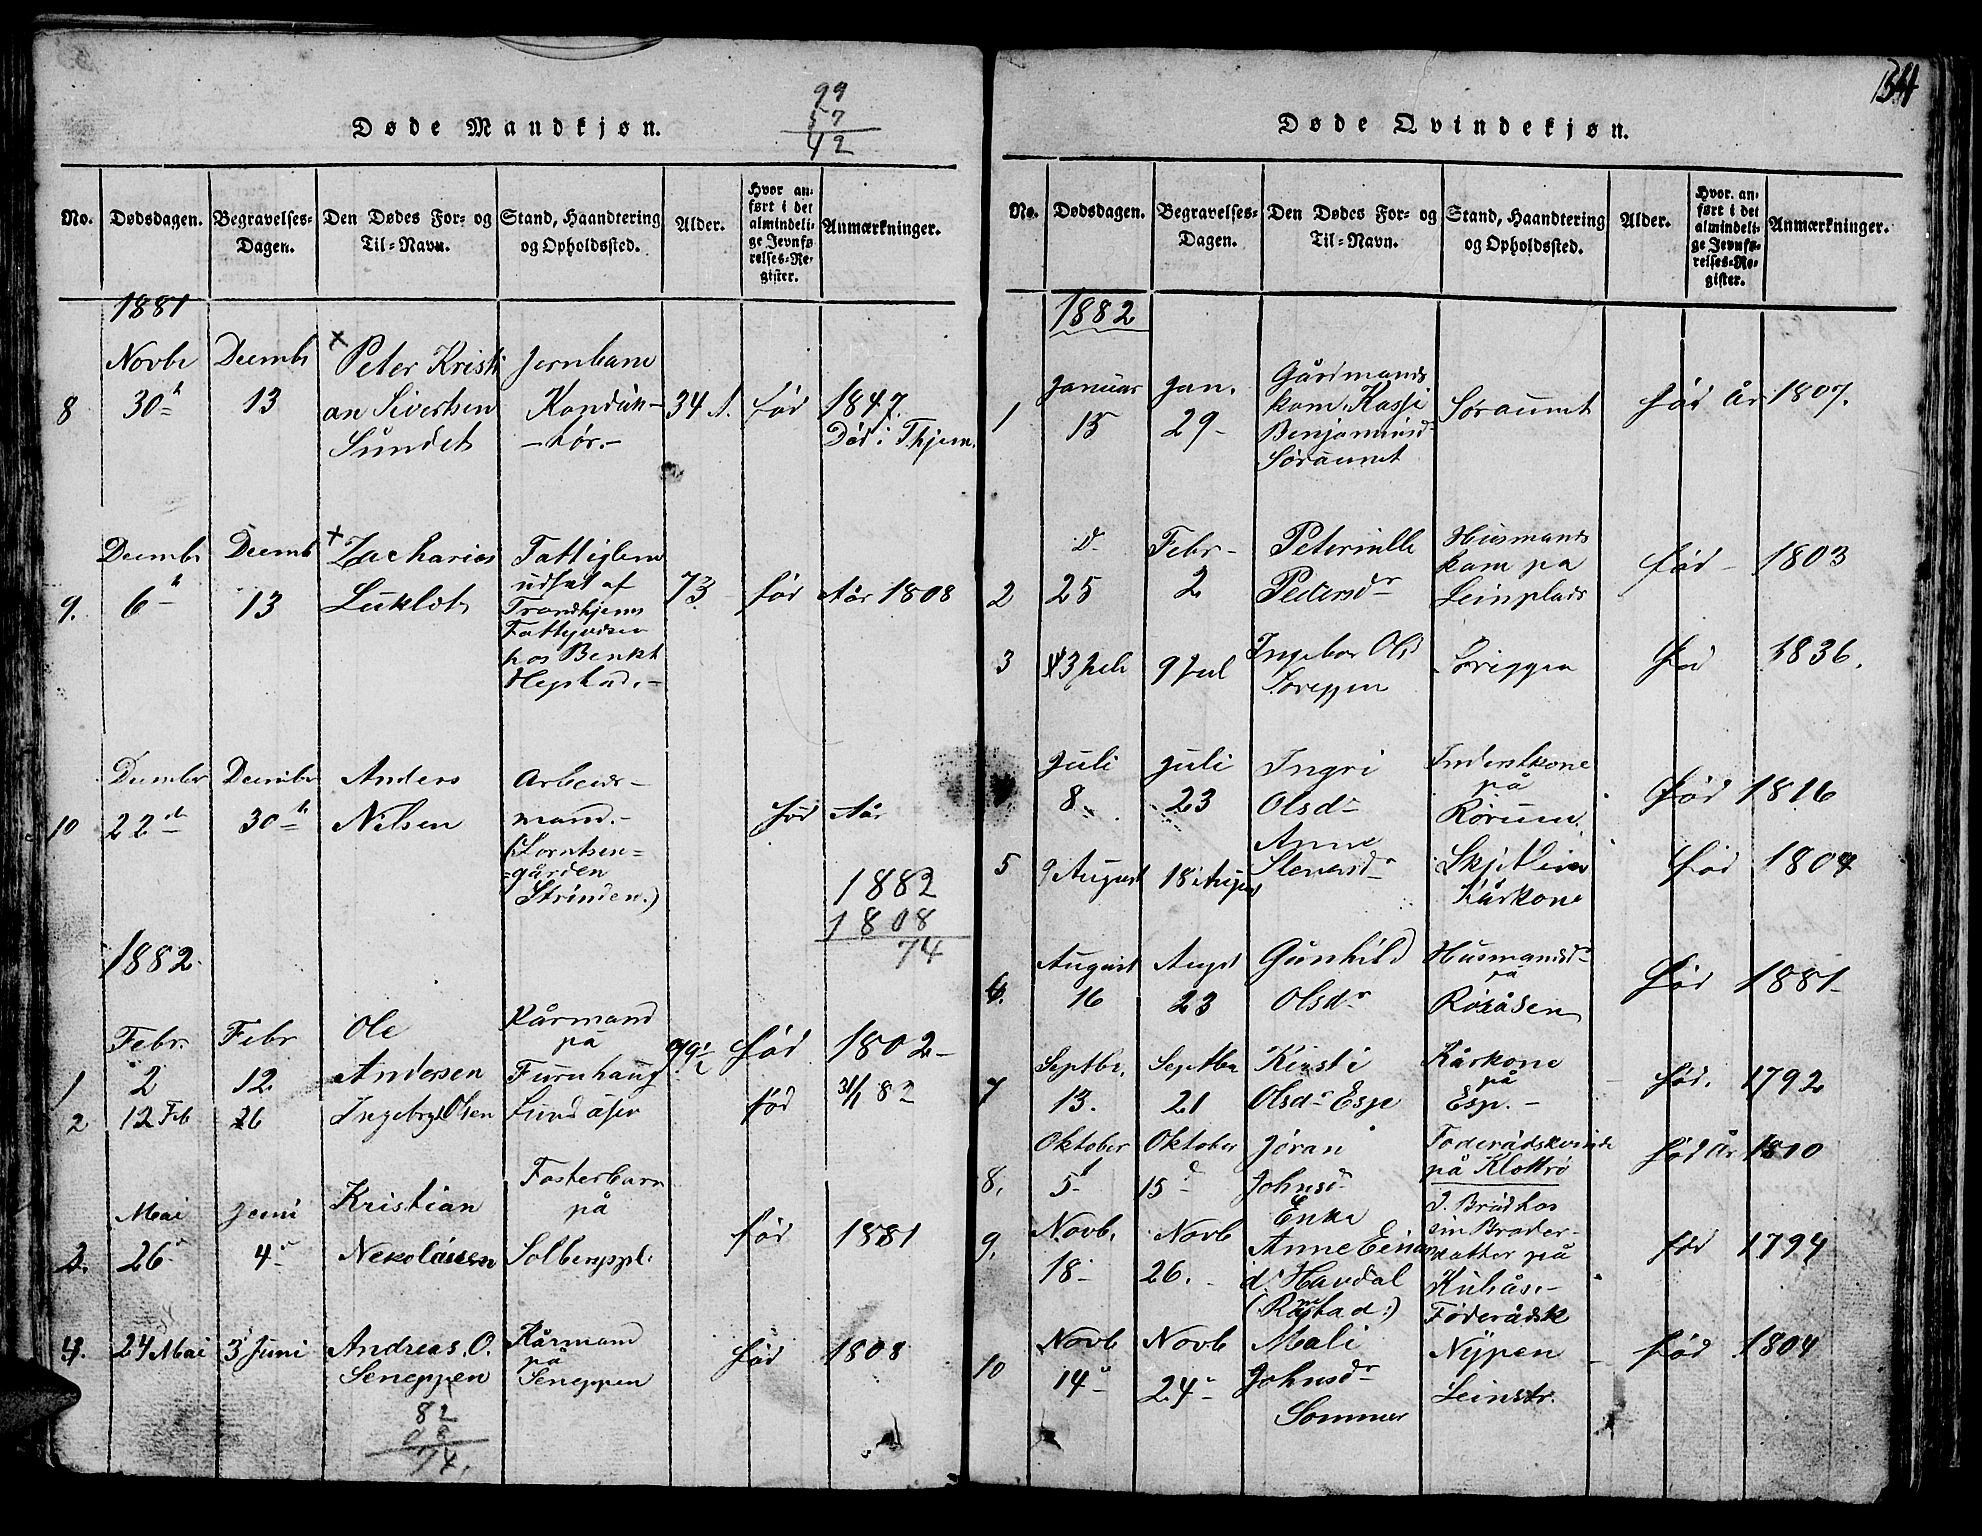 99
57
42
Døde Mandkjøn.
No.
Dødsdagen.
Begravelses-
Dagen.
Den Dødes For- og
Til-Navn.
Stand, Haandtering
og Opholdssted.
Alder.
Hvor an-
ført i det
almindeli-
ge Jevnfø-
relses-Re-
gister.
Anmærkninger.
1881
8
Novbr
30
Decembr
13
Peter Kristi
an Sivertsen
Sundet
Jernbane
Konduk-
-tør.-
34
fød
1847.
Død i Thjem.
9.
Decembr
6
Decemb
13
Zacharias
Fattiglem
udsat af
Trondhjems
hos Benkt
73
fød
Aår 1808
10
22
30
Anders
Nilsen
Arbeids-
mand.-
(Lorntsen=
=gården
Strinden.)
fød
Aår
1882
1808
74
1882
1
Febr.
2
Febr
12
Ole
Andersen
Kårmand
på
Furuhaug
fød
1802-
2
12 Feb
26
Ingebrgt Olsen
Lundåsen
fød
31/1 82
3.
Mai
26
Juni
4
Kristian
Nekolaisen
Fosterbarn
på
Solbergspl.
fød
1881
4.
24 Mai
3 Juni
Andreas. O.
Seneppen
Kårmand
på
Seneppen
fød
1808
82
08
74.
134
Døde Qvindekjøn.
No.
Dødsdagen.
Begravelses-
Dagen.
Den Dødes For- og
Til-Navn.
Stand, Haandtering
og Opholdssted.
Alder.
Hvor an-
ført i det
almindeli-
ge Jevnfø-
relses-Re-
gister.
Anmærkninger.
1882
1
Januar
15
Jan.
29-
Gårdmands
Benjaminsd
Søraunet
Søraunet
fød År
1807.
2
25
Febr-
2
Peternille
Pedersdr
Husmands
kone på
Leinplads
fød -
1803
3
9 Jul
Ingebor Ols
fød
1836.
Juli
8.
Juli
23
Ingri
Olsdr
på
Rørum.
fød
1816
5
9 August
18 August
Anne
Kårkone
fød
1804
6.
August
16
Augst
23
Gunhild
Olsdr
Husmandsdr
på
Røråsen
fød
1881-
7
Septbr.
13.
Septbr
21
Kirsti
Olsdr Esp
Kårkone
på
Esp.-
fød.
1792
8.
Oktober
5
Oktober
15
Jøran
Johnsd
Føderådskvinde
på Klottrø
fød År
1810
9.
Novb.
18-
Novb
26.-
Enke
Anne Einar
dr Havdal
sin Broder-
datter på
Kuhåse-
fød
1794
10
Novb
14
Novb
24
Mali
Johnsdr
Sommer
Føderådsk
Nypen
Leinstr.
fød
1804